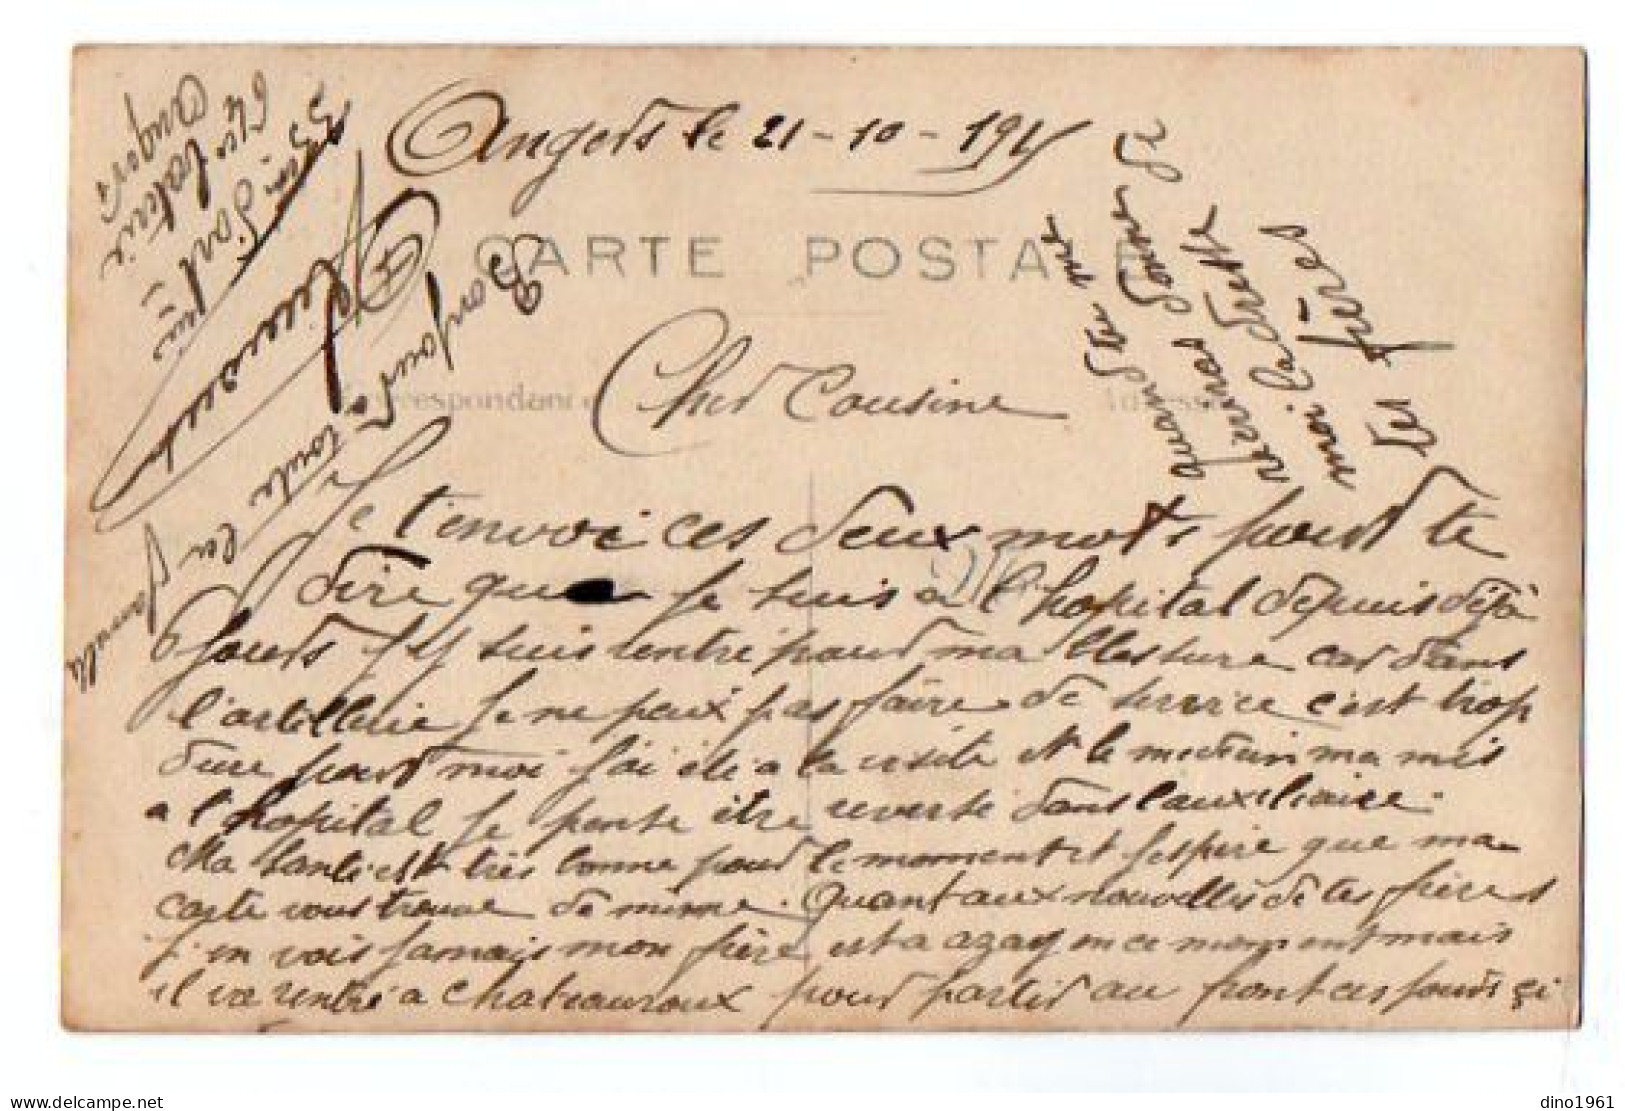 Angers le 21-10-191
CARTE POSTALE
Correspondance
Cher Cousine
Je t'envoi ces deux mots pour te
dire que je suis a l'hopital depuis déjà
jours j'y suis rentré pour ma blessure car dans
l'artillerie je ne peux pas faire de service c'est trop
dure pour moi j'ai été a la visite et le medecin ma mis
a l'hopital je pense être reversé dans l'auxiliaire.
Ma santé est très bonne pour le moment et j'espère que ma
carte vous trouve de meme. Quant aux nouvelles de tes frères
j'en vois jamais mon frère est a azay en ce moment mais
il va rentré a Chateauroux pour partir au front ces jours çi
Quand tu me
reveras donne
moi l'adresse
de tes frères
Bonjour a toute la famille
33
Angers